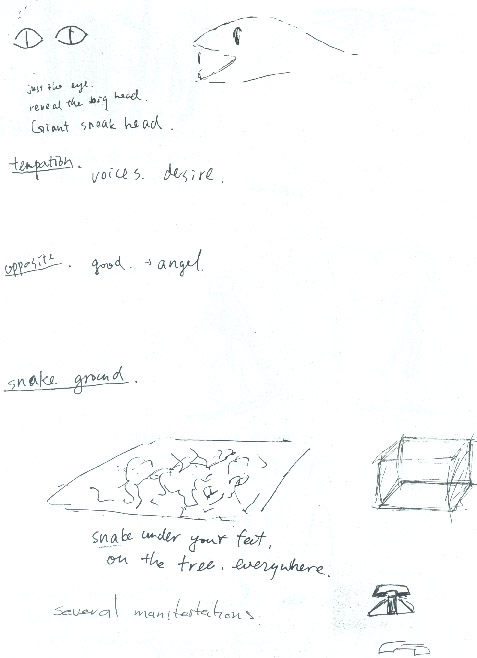 just the eye.
reveal the big head.
Giant sneak head.
tempation. voices. desire.
opposite. good. → angel.
snake ground.
snake under your feet,
on the tree. everywhere.
several manifestations.